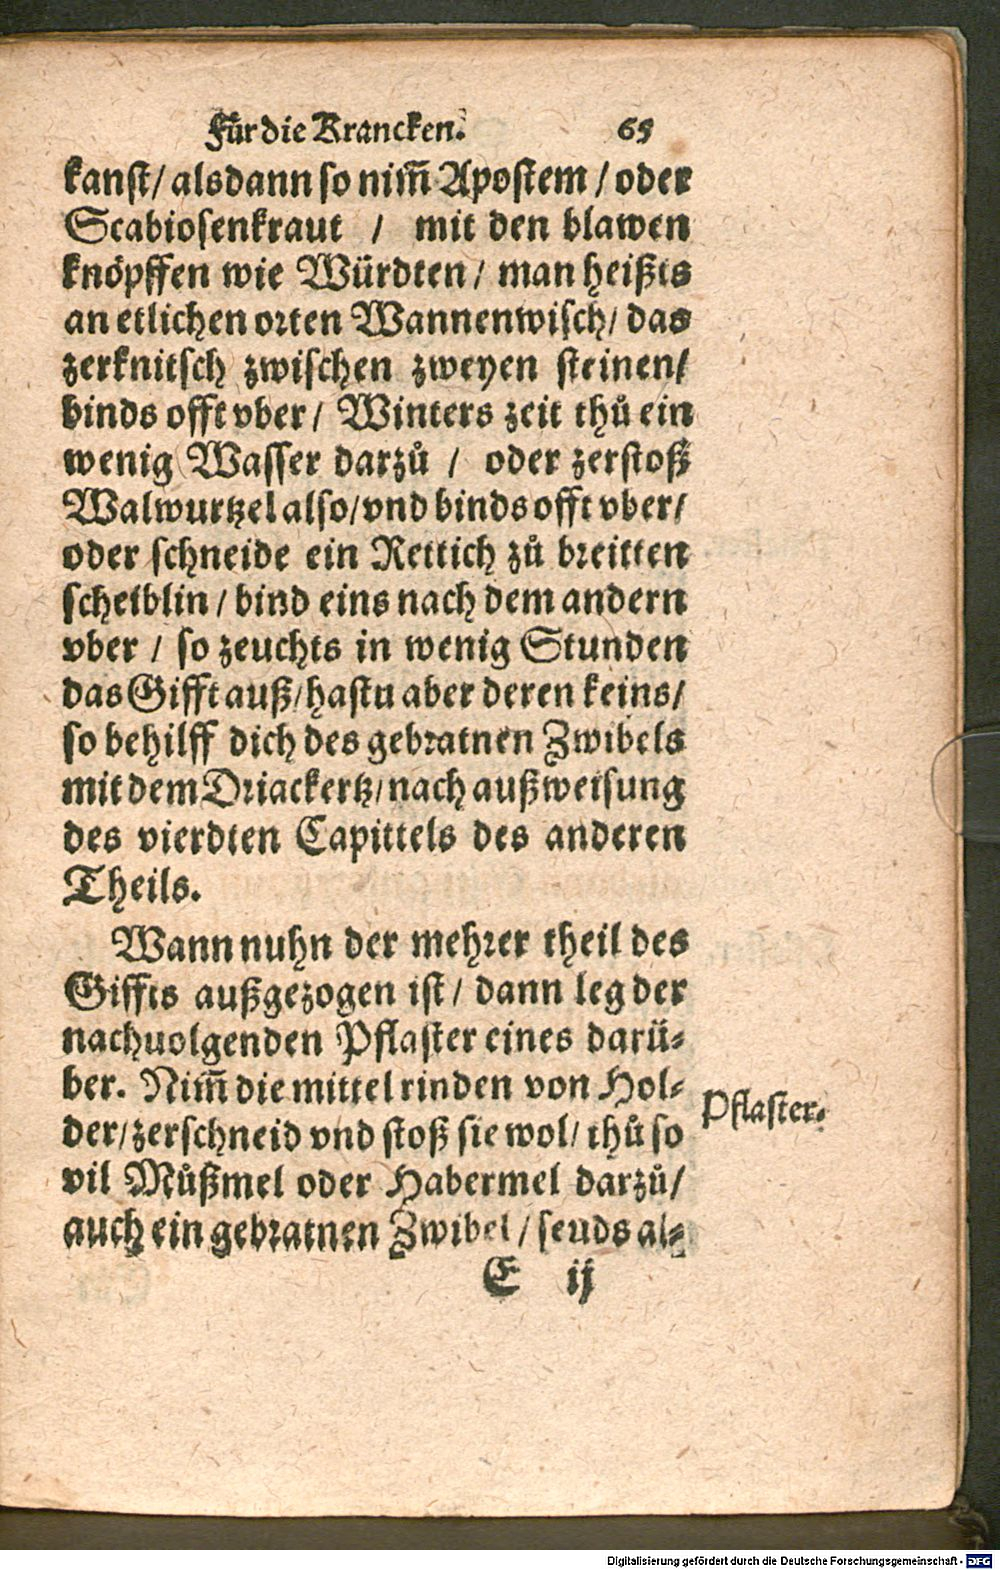 Für die Krancken. 65
kanst/ alsdann so nim̃ Apostem / oder
Scabiosenkraut / mit den blawen
knöpffen wie Würdten/ man heißts
an etlichen orten Wannenwisch/ das
zerknitsch zwischen zweyen steinen/
binds offt vber/ Winters zeit thů ein
wenig Wasser darzů / oder zerstoß
Walwurtzel also/vnd binds offt vber/
oder schneide ein Rettich zů breitten
scheiblin/ bind eins nach dem andern
vber / so zeuchts in wenig Stunden
das Gifft auß/hastu aber deren keins/
so behilff dich des gebratnen Zwibels
mit dem Driackertz/nach außweisung
des vierdten Capittels des anderen
Theils.
Wann nuhn der mehrer theil des
Giffts außgezogen ist/ dann leg der
nachuolgenden Pflaster eines darü⸗
ber. Nim̃ die mittel rinden von Hol⸗
der/zerschneid vnd stoß sie wol/ thů so
Pflaster.
vil Můßmel oder Habermel darzů/
auch ein gebratnen Zwibel/ seuds al⸗
E ij
Digitalisierung gefördert durch die Deutsche Forschungsgemeinschaft - DFG